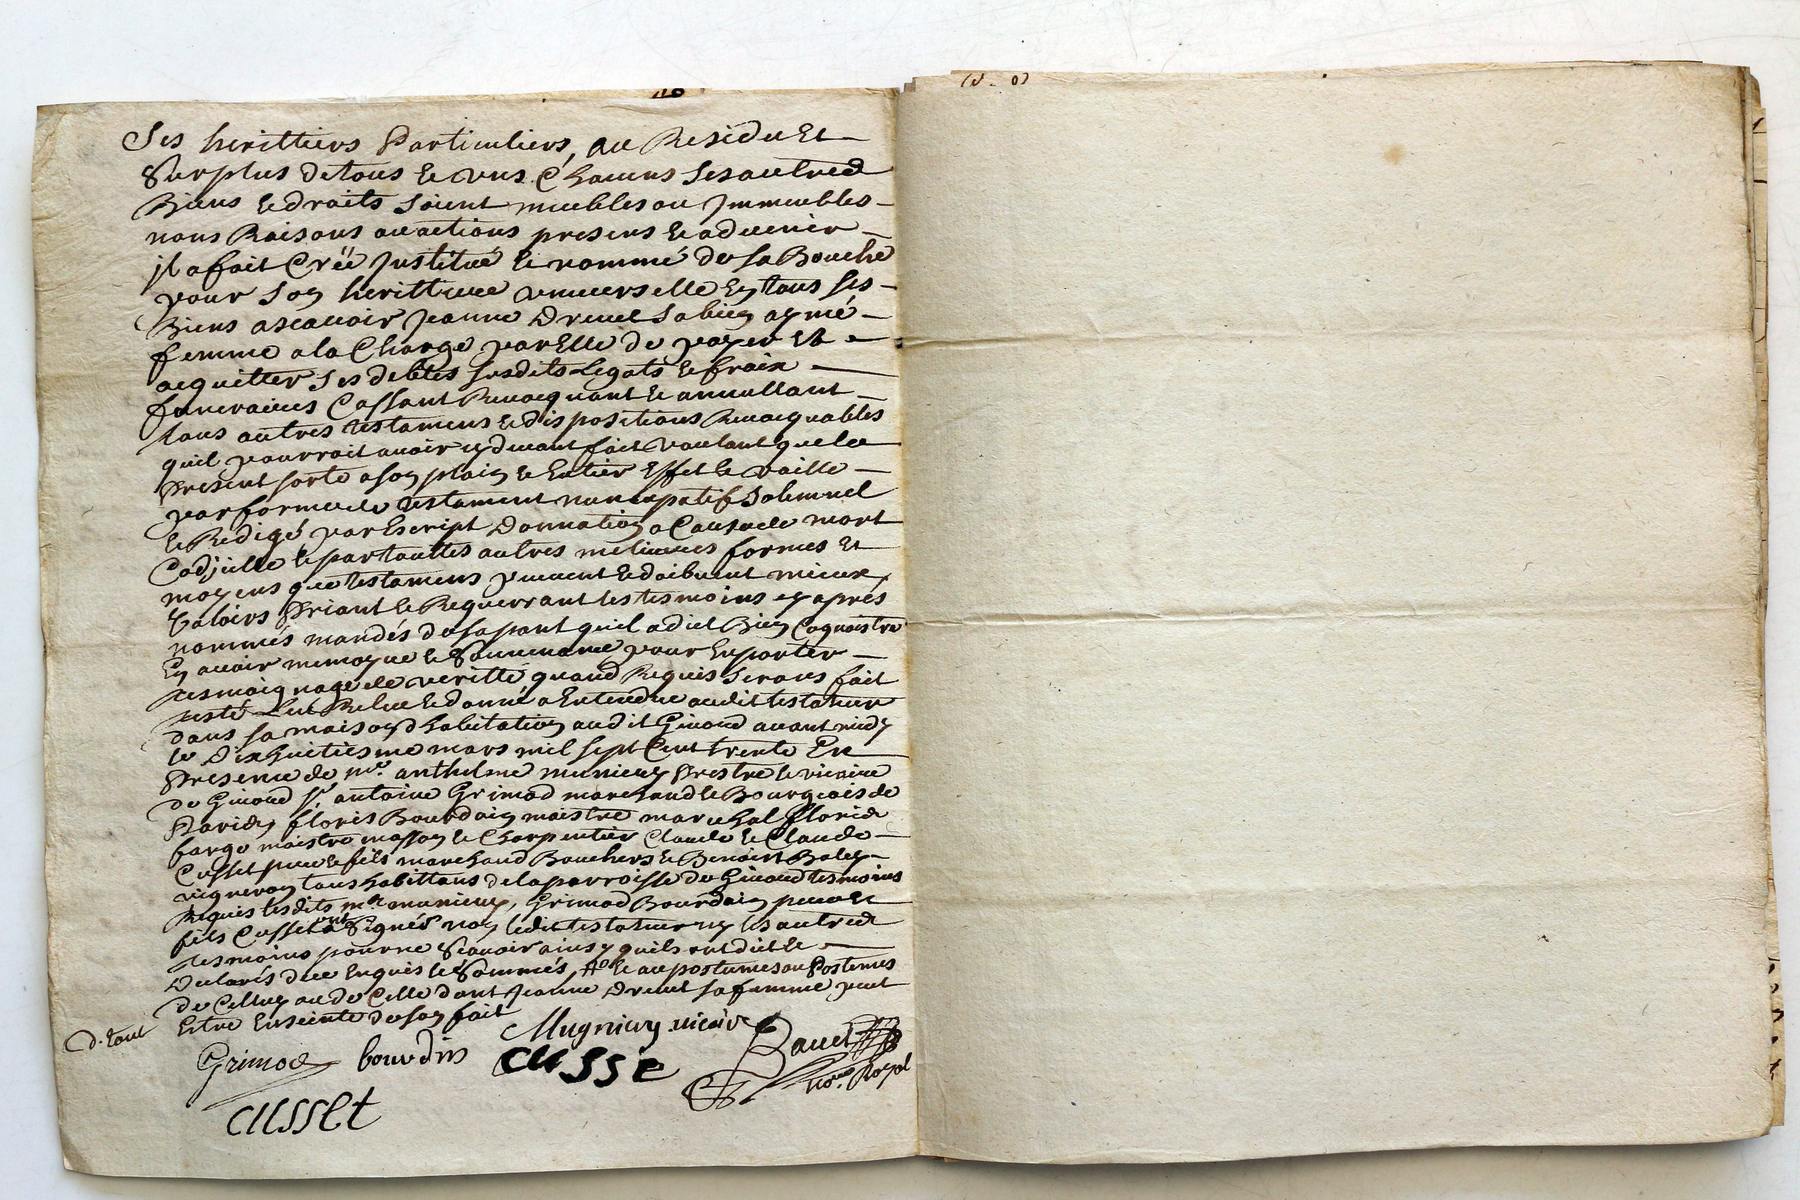 Ses herittiers Particuliers, au Residu Et
Surplus de tous Et uns Chacuns Ses autres
Biens Et droits Soient meubles ou Immeubles
noms Raisons ou actions presens Et advenir
jl a fait Créé Justitué Et nommé de sa Bouche
pour Son herittiere universelle En tous ses
Biens ascavoir Jeanne Drevet sa bien aymé
femme a la Charge par Elle de payer Et
acquitter Ses debtes susdits Legats Et fraix
funeraires Cassant Revocquant Et annullant
tous autres testamens Et dispositions Revocquables
quil pourroit avoir cy devant fait voulant que le
Present sorte a son plain Et Entier Effet Et vaille
par forme de testament nuncupatif Solemnel
Et Redigé par Escript Donnation a Cause de mort
Codjcille Et par touttes autres melieures formes Et
moyens que testamens peuvent Et doibvent mieux
Valoirs Priant Et Requerrant les tesmoins cy apres
nommés mandés de sa part quil a dict Bien Cognoistre
En avoir memoyre Et Souvenance pour En porter
tesmoignage de veritté quand Requis Serons fait
testé Leu Releu Et donné a Entendre audit testateur
dans sa maison dhabitation audit Givord avant midy
le Dixhuitiesme mars mil sept Cent trente En
Presence de mre. anthelme munieux Prestre Et vicaire
de Givord sr. antoine Grimod marchand Et Bourgeois de
floris Bourdin maistre marechal floris
farge maistre masson Et Charpentier Claude Et Claude
Cusset pere Et fils marchand Bouchers Et Benoist
vigneron tous habittans de la parroisse de Givord tesmoins
Requis lesdits mre munieux, Grimod Bourdin pere Et
fils Cusset ont Signés non ledit testateur ny les autres
tesmoins pour ne Scavoir ainsy quils ont dict Et
Declarés de ce Enquis Et Sommés, Et au postumes ou Postumes
de Celluy ou de Celle dont Jeanne Drevet sa femme peut
Estre Enseinte de son fait
Mugnieux vicaire
Grimod bourdin CUSSE
no.re Royal
CUSSEt